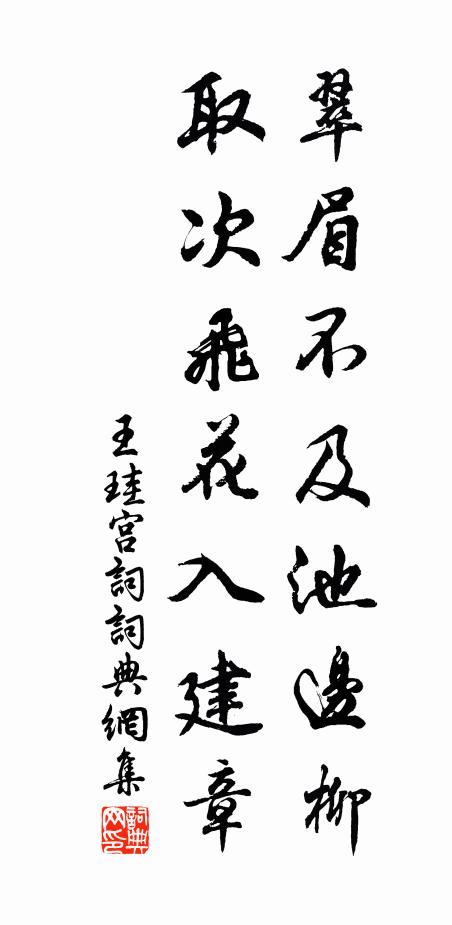 翠眉不及池邊柳
取次飛花入建章
王珪宮詞詞典網集
詞典
网印